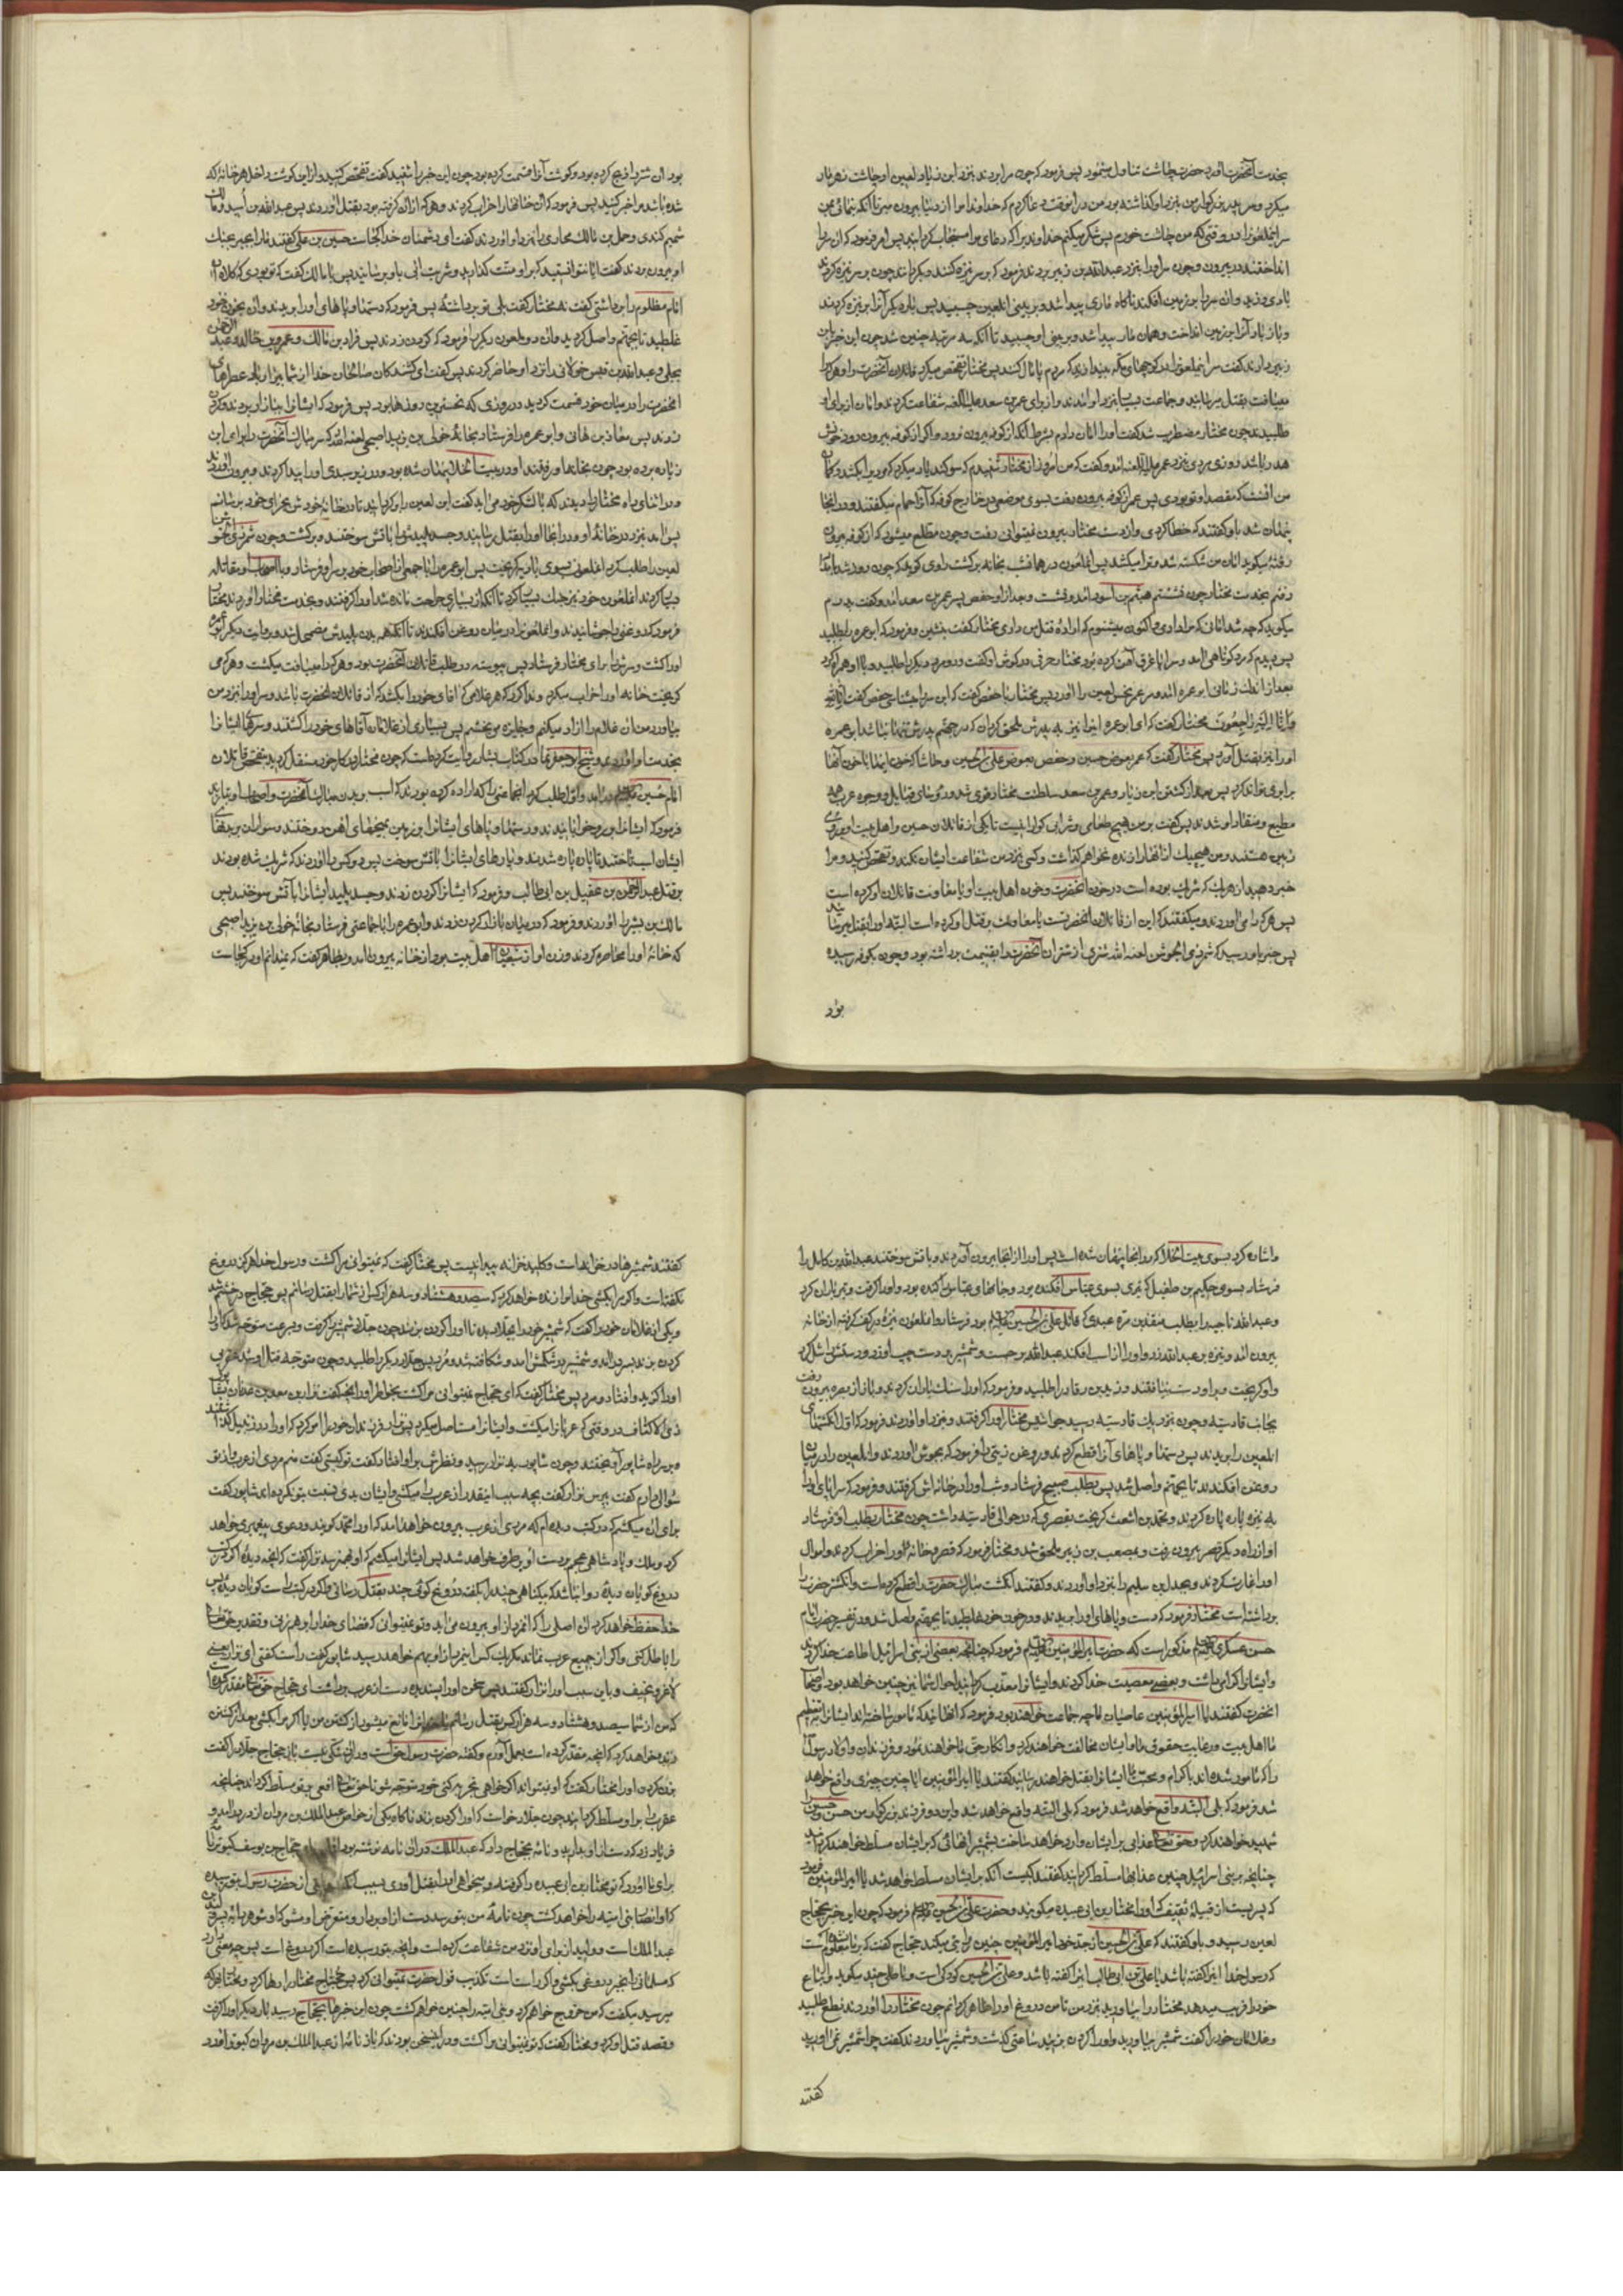 بخدمت آنحضرت آورد حضرت چاشت تناول مینمود پس فرمود که چون مرا بردند بنزد ابن زیاد لعین او چاشت زهرمار
میکرد و سر پدر بزرگوار من بنزد او گذاشته بود من در آنوقت دعا کردم که خداوندا مرا از دنیا بیرون مبر تا آنکه بنمائی بمن
سر آن ملعونرا در وقتی که من چاشت خورم پس شکر میکنم خداوندیرا که دعای مرا مستجاب گردانید پس امر فرمود که آن سر را
انداختند در بیرون و چون سر او را بنزد عبدالله بن زبیر بردند فرمود که بر سر نیزه کنند و بگردانند چون بر سر نیزه کردند
بادی وزید و آن سر را بر زمین افکند ناگاه ماری پیدا شد و بر بینی آن لعین چسبید پس بار دیگر آنرا بر نیزه کردند
و باز باد آنرا بر زمین انداخت و همان مار پیدا شد و بر بینی او چسبید تا آنکه سه مرتبه چنین شد چون این خبر بابن
زبیر دادند گفت سر این ملعونرا در کوچهای مکه بیندازید که مردم پامال کنند پس مختار تفحص میکرد قاتلان آنحضرت را و هر کرا
مییافت بقتل میرسانید و جماعت بسیار بنزد او آمدند و از برای عمر بن سعد علیه اللعنه شفاعت کردند و امان از برای او
طلبیدند چون مختار مضطر شد گفت او را امان دادم بشرط آنکه از کوفه بیرون نرود و اگر از کوفه بیرون رود خونش
هدر باشد روزی مردی نزد عمر علیه اللعنه آمد و گفت که من امروز از مختار شنیدم که سوگند یاد میکرد که مردیرا بکشد و گمان
من آنست که مقصد او تو بودی پس عمر از کوفه بیرون رفت بسوی موضعی در خارج کوفه که آنرا حمام میگفتند و در آنجا
پنهان شد باو گفتند که خطا کردی و از دست مختار بیرون نمیتوانی رفت و چون مطلع میشود که از کوفه بیرون
رفته میگوید امان من شکسته شد و ترا میکشد پس آن ملعون در همان شب بخانه برگشت راوی گوید که چون روز شد بامداد
رفتم بخدمت مختار چون نشستم هیثم بن اسود آمد و نشست و بعد از او حفص پسر عمر بن سعد آمد و گفت پدرم
میگوید که چه شد امانی که مرا دادی و اکنون میشنوم که اراده قتل من داری مختار گفت بنشین و فرمود که ابو عمره را طلبید
پس دیدم که مرد کوتاهی آمد و سراپا غرق آهن گردیده بود مختار حرفی در گوش او گفت و دو مرد دیگر را طلبید و با او همراه کرد
بعد از اندک زمانی ابو عمره آمد و سر عمر نحس لعین را آورد پس مختار با حفص گفت که این سر را میشناسی حفص گفت انا لله
و انا الیه راجعون مختار گفت که ای ابو عمره اینرا نیز به پدرش ملحق گردان که در جهنم پدرش تنها نباشد ابو عمره
او را نیز بقتل آورد پس مختار گفت که عمر بعوض حسین و حفص بعوض علی بن الحسین و حاشا که خون اینها با خون آنها
برابری تواند کرد پس بعد از کشتن ابن زیاد و عمر بن سعد سلطنت مختار قوی شد و رؤسای قبایل و وجوه عرب همه
مطیع و منقاد او شدند پس گفت بر من هیچ طعامی و شرابی گوارا نیست تا یکی از قاتلان حسین و اهل بیت او بر روی
زمین هستند و من هیچیک از آنها را زنده نخواهم گذاشت و کسی نزد من شفاعت ایشان نکند و تفحص کنید و مرا
خبر دهید از هر یک که شریک بوده است در خون آنحضرت و خون اهل بیت او یا معاونت قاتلان او کرده است
پس هر کرا می آوردند و میگفتند که این از قاتلان آنحضرتست یا معاونت بر قتل او کرده است البته او را بقتل میرسانید
پس خبر باو رسید که شمر ذی الجوشن لعنه الله شتری از شتران آنحضرت را بغنیمت برداشته بود و چون بکوفه رسیده
بود
بود آن شتر را ذبح کرده بود و گوشت آنرا قسمت کرده بود چون این خبر را شنید گفت تفحص کنید و از این گوشت داخل هر خانه که
شده باشد مرا خبر کنید پس فرمود که آن خانها را خراب کردند و هر که از آن گرفته بود بقتل آوردند پس عبدالله بن اسید و مالک
شمیم کندی و حمل بن مالک محاربی را نزد او آوردند گفت ای دشمنان خدا کجاست حسین بن علی گفتند ما را بجبر بجنگ
او بیرون بردند گفت آیا نتوانستید که بر او منت گذارید و شربت آبی باو برسانید پس با مالک گفت که تو بودی که کلاه آن
امام مظلوم را برداشتی گفت نه مختار گفت بلی تو برداشتی پس فرمود که دستها و پاهای او را بریدند و او در خون خود
غلطید تا بجهنم واصل گردید و آن دو ملعون دیگر را فرمود که گردن زدند پس قراد بن مالک و عمرو بن خالد و عبدالرحمن
بجلی و عبدالله بن قیس خولانی را نزد او حاضر کردند پس گفت ای کشندگان صالحان خدا از شما بیزار باد عطرهای
آنحضرت را در میان خود قسمت کردید در روزی که نحسترین روزها بود پس فرمود که ایشانرا ببازار بردند و گردن
زدند پس معاذ بن هانی و ابو عمره را فرستاد بخانه خولی بن یزید اصبحی لعنه الله که سر مبارک آنحضرت را برای ابن
زیاد برده بود چون بخانه او رفتند او در بیت الخلا پنهان شده بود و در زیر سبدی او را پیدا کردند و بیرون آوردند
و در اثنای راه مختار را دیدند که با لشکر خود می آید گفت این لعین را برگردانید تا در خانه خودش بجزای خود برسانم
پس آمد بنزد در خانه او و در آنجا او را بقتل رسانید و جسد پلیدش را بآتش سوختند و برگشت و چون شمر ذی الجوشن
لعین را طلب کرد آن ملعون بسوی بادیه گریخت پس ابو عمره را با جمعی از اصحاب خود بر سر او فرستاد و با اصحاب او مقاتله
بسیار کردند آن ملعون خود نیز جنگ بسیار کرد تا آنکه از بسیاری جراحت مانده شد او را گرفتند و بخدمت مختار آوردند مختار
فرمود که روغنی را جوشانیدند و آن ملعونرا در میان روغن افکندند تا آنکه همه بدن پلیدش مضمحل شد و بروایت دیگر ابو عمره
او را کشت و سرش را برای مختار فرستاد پس پیوسته در طلب قاتلان آنحضرت بود و هر کرا مییافت میکشت و هر که می
گریخت خانه او را خراب میکرد و ندا کرد که هر غلامی که آقای خود را بکشد که از قاتلان آنحضرت باشد و سر او را بنزد من
بیاورد من آن غلام را آزاد میکنم و جایزه می بخشم پس بسیاری از غلامان آقاهای خود را کشتند و سرهای ایشانرا
بخدمت او آوردند و شیخ ابو جعفر نما در کتاب بشارت روایت کرده است که چون مختار در کار خود مستقل گردید بتفحص قاتلان
امام حسین علیه السلام در آمد و اول طلب کرد آن جماعتی را که اراده کرده بودند که اسب بر بدن مبارک آنحضرت و اصحاب او بتازند
فرمود که ایشانرا بر رو خوابانیدند و دستها و پاهای ایشانرا بر زمین بمیخهای آهن دوختند و سواران بر بدنهای
ایشان اسب تاختند تا پاره پاره شدند و پارهای ایشانرا بآتش سوخت پس دو کس را آوردند که شریک شده بودند
بر قتل عبدالرحمن بن عقیل بن ابی طالب و فرمود که ایشانرا گردن زدند و جسد پلید ایشانرا بآتش سوختند پس
مالک بن بشیر را آوردند و فرمود که در میان بازار گردن زدند و ابو عمره را با جماعتی فرستاد بخانه خولی بن یزید اصبحی
که خانه او را محاصره کردند و زن او از شیعیان اهل بیت بود از خانه بیرون آمد و بظاهر گفت که نمیدانم او در کجاست
و اشاره کرد بسوی بیت الخلا که در آنجا پنهان شده است پس او را از آنجا بیرون آوردند و بآتش سوختند عبدالله بن کامل را
فرستاد بسوی حکیم بن طفیل که تیری بسوی عباس افکنده بود و جامهای عباس را کنده بود و او را گرفت و تیر باران کرد
و عبدالله ناجیه را بطلب منقذ بن مره عبدی که قاتل علی بن الحسین علیه السلام بود فرستاد و آن ملعون نیزه در کف گرفته از خانه
بیرون آمد و نیزه بر عبدالله زد و او را از اسب افکند عبدالله برجست و شمشیر بر دست چپ او زد و دستش را شل کرد
و او گریخت و بر او دست نیافتند و زید بن رقاد را طلبید و فرمود که او را سنگ باران کردند و باز از بصره بیرون رفت
بجانب قادسیه و چون نزدیک قادسیه رسید جواسیس مختار او را گرفتند و بنزد او آوردند فرمود که اول انگشتهای
آن لعین را بریدند پس دستها و پاهای آنرا قطع کردند و روغن زیتی را فرمود که بجوش آوردند و آن لعین را در میان
روغن افکندند تا بجهنم واصل شد پس بطلب صبیح فرستاد و شب او را در خانه اش گرفتند و فرمود که سراپای او را
به نیزه پاره پاره کردند و محمد بن اشعث گریخت بقصری که در حوالی قادسیه داشت چون مختار بطلب او فرستاد
او از راه دیگر قصر بیرون رفت و بمصعب بن زبیر ملحق شد و مختار فرمود که قصر و خانه او را خراب کردند و اموال
او را غارت کردند و بجدل بن سلیم را بنزد او آوردند و گفتند انگشت مبارک حضرت را قطع کرده است و انگشتر حضرت را
برداشته است مختار فرمود که دست و پاهای او را بریدند و در خون خود غلطید تا بجهنم واصل شد و در تفسیر حضرت امام
حسن عسکری علیه السلام مذکور است که حضرت امیرالمؤمنین علیه السلام فرمود که چنانچه بعضی از بنی اسرائیل اطاعت خدا کردند
و ایشانرا گرامی داشت و بعضی معصیت خدا کردند و ایشانرا معذب گردانید احوال شما نیز چنین خواهد بود و اصحاب
آنحضرت گفتند یا امیرالمؤمنین عاصیان ما چه جماعت خواهند بود فرمود که آنهایند که مأمور ساخته اند ایشانرا بتعظیم
ما اهل بیت و رعایت حقوق ما و ایشان مخالفت خواهند کرد و انکار حق ما خواهند نمود و فرزندان و اولاد رسول را
را که مأمور شده اند باکرام و محبت ما ایشانرا بقتل خواهند رسانید گفتند یا امیرالمؤمنین آیا چنین چیزی واقع خواهد
شد فرمود که بلی البته واقع خواهد شد فرمود که بلی البته واقع خواهد شد و این دو فرزند بزرگوار من حسن و حسین را
شهید خواهند کرد و حق تعالی عذابی بر ایشان وارد خواهد ساخت بشمشیر آنهائی که بر ایشان مسلط خواهند گردانید
چنانچه بر بنی اسرائیل چنین عذابها مسلط گردانید گفتند کیست آنکه بر ایشان مسلط خواهد شد یا امیرالمؤمنین فرمود
که پسریست از قبیله ثقیف که او را مختار بن ابی عبیده میگویند و حضرت علی بن الحسین علیه السلام فرمود که چون این خبر بحجاج
لعین رسید و باو گفتند که علی بن الحسین از جد خود امیرالمؤمنین چنین روایتی میکند حجاج گفت که بر ما معلوم نشده است
که رسول خدا اینرا گفته باشد یا علی بن ابی طالب اینرا گفته باشد و علی بن الحسین کودکی است و باطلی چند میگوید و اتباع
خود را فریب میدهد مختار را بیاورید بنزد من تا من دروغ او را ظاهر گردانم چون مختار را آوردند نطع طلبید
و غلامان خود را گفت شمشیر بیاورید و او را گردن بزنید ساعتی گذشت و شمشیر نیاوردند گفت چرا شمشیر نمی آورید
گفتند
گفتند شمشیرها در خزانه است و کلید خزانه پیدا نیست پس مختار گفت که نمیتوانی مرا کشت و رسول خدا هرگز دروغ
نگفته است و اگر مرا بکشی خدا مرا زنده خواهد کرد که سیصد و هشتاد و سه هزار کس از شما را بقتل رسانم پس حجاج در خشم شد
و یکی از غلامان خود را گفت که شمشیر خود را بجلاد بده تا او را گردن بزند چون جلاد شمشیر را گرفت و بسرعت متوجه شد که او را
گردن بزند بسر در آمد و شمشیر در شکمش آمد و شکافته شد و مرد پس جلاد دیگر را طلبید و چون متوجه قتل او شد عقربی
او را گزید و افتاد و مرد پس مختار گفت که ای حجاج نمیتوانی مرا کشت بخاطر آور آنچه گفت نزار بن معد بن عدنان بشاپور
ذی الاکتاف در وقتی که عربانرا میکشت و ایشانرا مستاصل میکرد پس نزار فرزندان خود را امر کرد که او را در زنبیل گذاشتند
و بر سر راه شاپور آویختند و چون شاپور به نزار رسید و نظرش بر او افتاد گفت تو کیستی گفت منم مردی از عرب و از تو
سؤالی دارم گفت بپرس نزار گفت بچه سبب اینقدر از عرب را میکشی و ایشان بدی نسبت بتو نکرده اند شاپور گفت
برای آن میکشم که در کتب دیده ام که مردی از عرب بیرون خواهد آمد که او را محمد گویند و دعوی پیغمبری خواهد
کرد و ملک و پادشاهی عجم بر دست او برطرف خواهد شد پس ایشانرا میکشم که او بهم نرسد نزار گفت که آنچه دیده اگر در کتب
دروغ گویان دیده روا نباشد که بیگناهی چند را بگفته دروغ گوئی چند بقتل رسانی و اگر در کتب راست گویان دیده پس
خدا حفظ خواهد کرد آن اصلی را که آنمرد از او بیرون می آید و تو نمیتوانی که قضای خدا را بر هم زنی و تقدیر حق تعالی
را باطل کنی و اگر از جمیع عرب نماند مگر یک کس آنمرد از او بهم خواهد رسید شاپور گفت راست گفتی ای نزار یعنی
لاغر و نحیف و باین سبب او را نزار گفتند پس سخن او را پسندید و دست از عرب برداشت ای حجاج حق تعالی مقدر کرده
که من از شما سیصد و هشتاد و سه هزار کس بقتل رسانم یا خدا ترا مانع میشود از کشتن من یا اگر مرا بکشی بعد از کشتن
زنده خواهد کرد که آنچه مقدر کرده است بعمل آورم و گفته حضرت رسول حق است و در آن شکی نیست باز حجاج جلاد را گفت
بزن گردن او را مختار گفت که او نمیتواند اگر خواهی تجربه کنی خود متوجه شو تا حق تعالی افعی بر تو مسلط گرداند چنانچه
عقرب را بر او مسلط گردانید چون جلاد خواست که او را گردن بزند ناگاه یکی از خواص عبدالملک بن مروان از در در آمد و
فریاد زد که دست از او بدارید و نامه بحجاج داد که عبدالملک در آن نامه نوشته بود اما بعد ای حجاج بن یوسف کبوتر نامه
برای ما آورد که تو مختار بن ابی عبیده را گرفته و میخواهی او را بقتل آوری بسبب آنکه روایتی از حضرت رسول بتو رسیده
که او انصار بنی امیه را خواهد کشت چون نامه من بتو رسد دست از او بدار و متعرض او مشو که او شوهر دایه پسر ولید بن
عبدالملک است و ولید از برای او نزد من شفاعت کرده است و آنچه بتو رسیده است اگر دروغ است پس چه معنی دارد
که مسلمانی را بخبر دروغی بکشی و اگر راست است تکذیب قول حضرت نمیتوانی کرد پس حجاج مختار را رها کرد و مختار بهر که
میرسید میگفت که من خروج خواهم کرد و بنی امیه را چنین خواهم کشت چون این خبرها بحجاج رسید بار دیگر او را گرفت
و قصد قتل او کرد و مختار گفت که تو نمیتوانی مرا کشت و در این سخن بودند که باز نامه از عبدالملک بن مروان کبوتر آورد